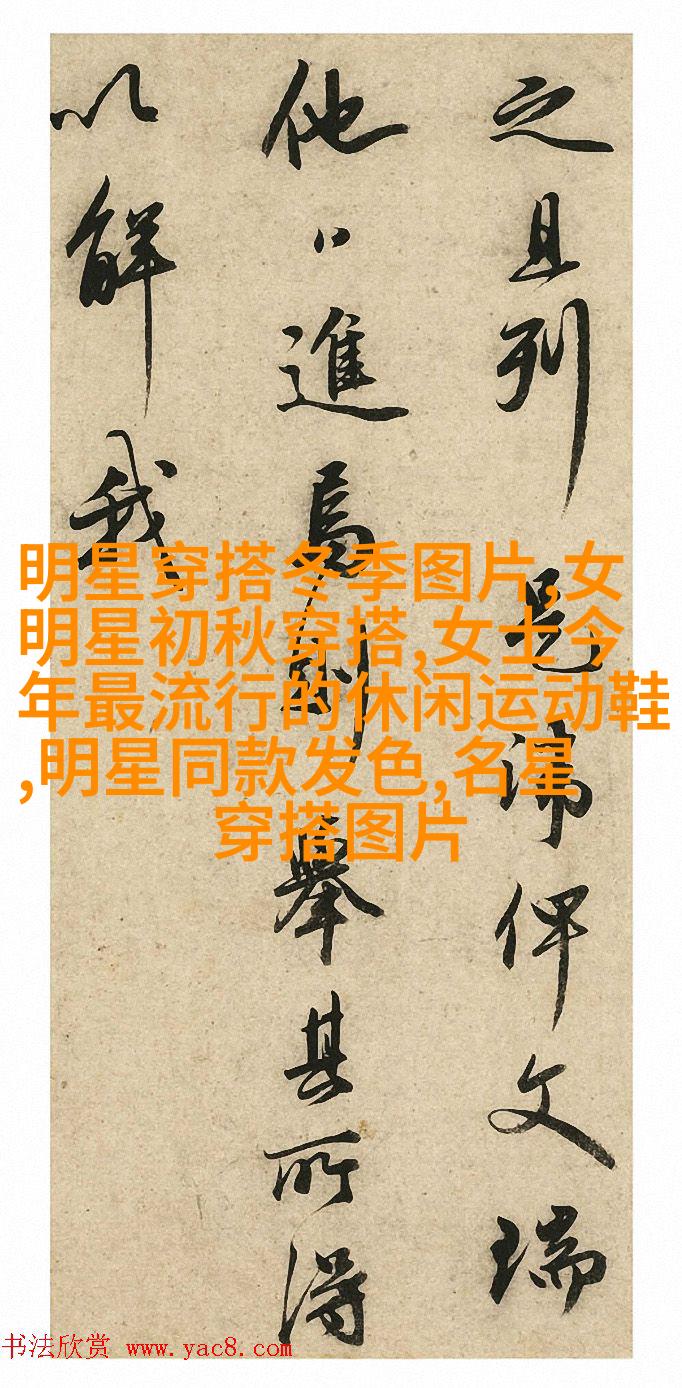 之且列題諦俾文瑞
他々進焉則舉其所得
以解我
明星穿搭冬季图片,女
明星初秋穿搭,女士今
年最流行的休闲运动鞋
,明星同款发色,名星
穿搭图片
书法欣赏 www.yac8.com